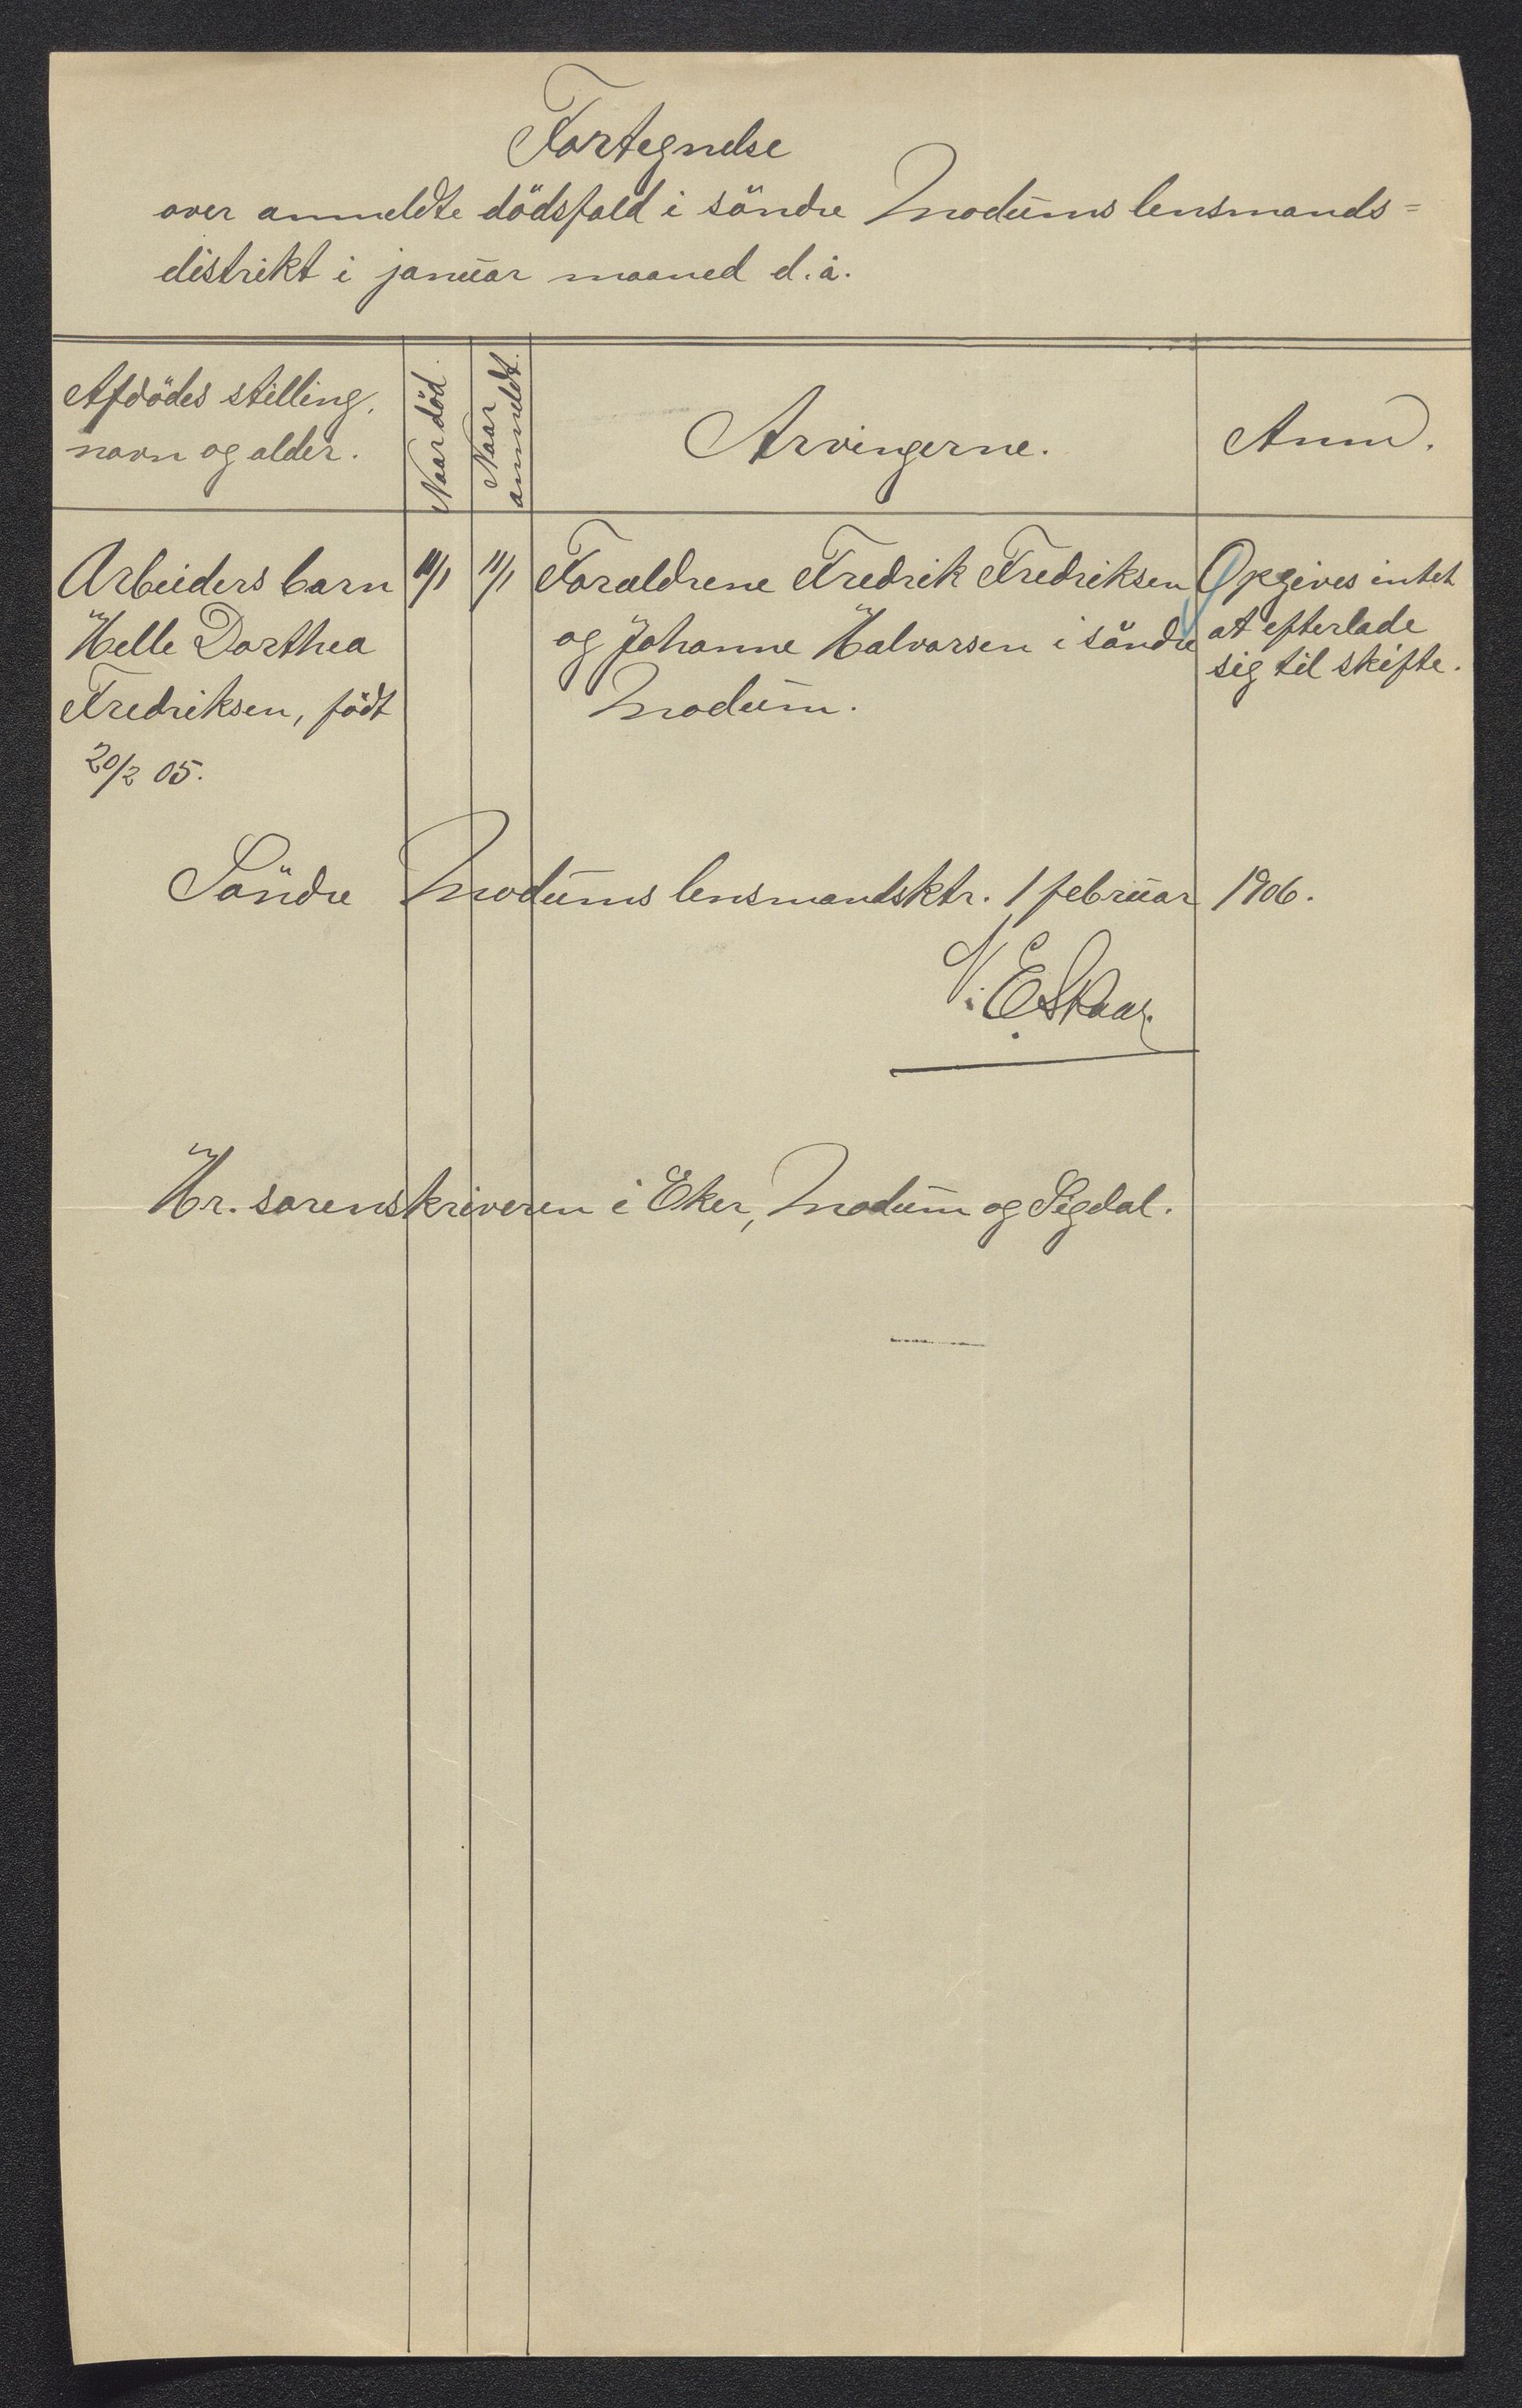 Fortegnelse
over anmeldte dödsfald i söndre Modums lensmands=
distrikt i januar maaned d. å.
Afdödes stilling,
navn og alder.
Naar död.
Naar
anmeldt.
Arvingerne.
Anm.
Arbeiders barn
Helle Dorthea
Fredriksen, födt
20/2 05.
11/1
Foraldrene Fredrik Fredriksen
og Johanne Halvorsen i söndre
Modum.
Opgives intet
at efterlade
sig til skifte.
Söndre Modums lensmandsktr. 1 februar 1906.
N. E. Skaar.
Hr. sorenskriveren i Eker, Modum og Sigdal.